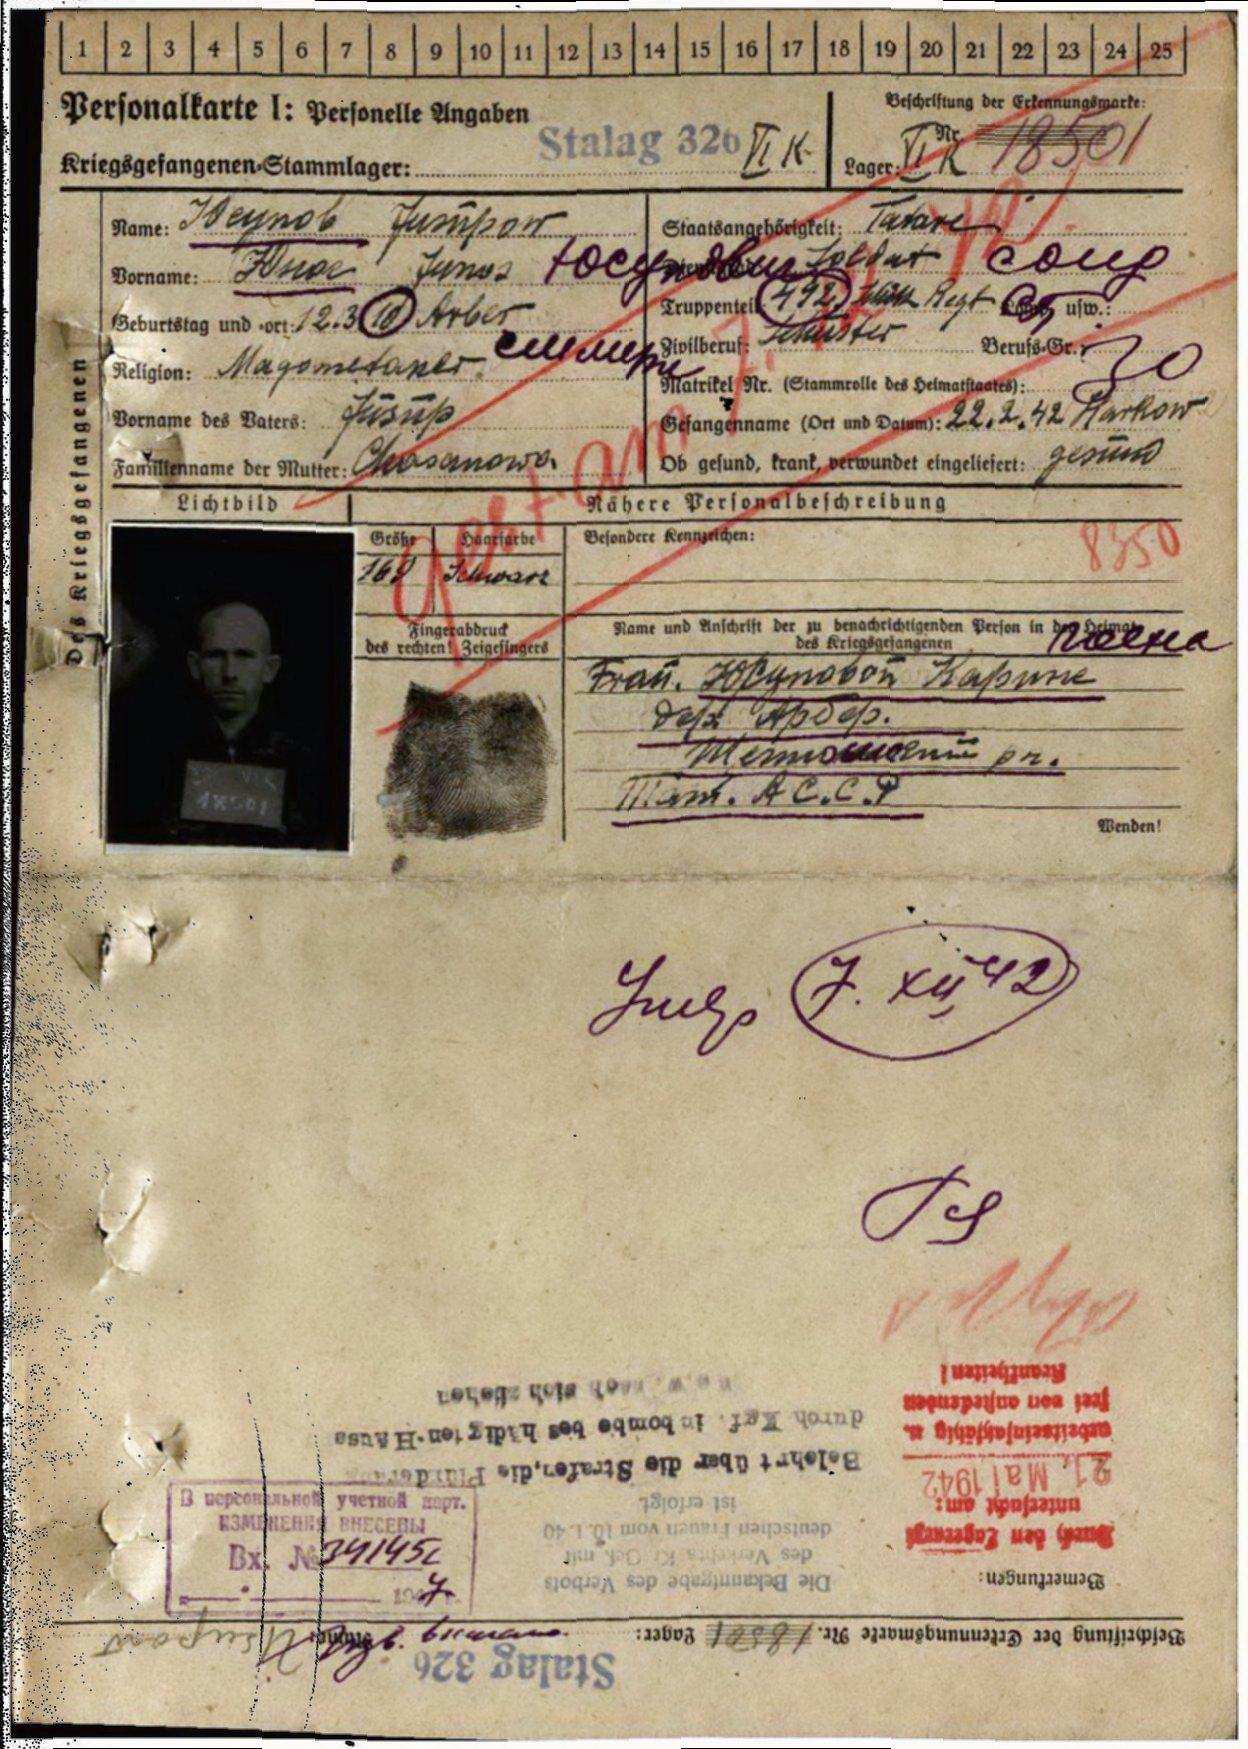 1 2 3 4 5 6 7 8 9 10 11 12 13 14 15 16 17 18 19 20 21 22 23 24 25
Personalkarte I: Personelle Angaben
Kriegsgefangenen-Stammlager: Stalag 326 VI K
Beschriftung der Erkennungsmarke:
Nr. 18501
Lager: VI K
Des Kriegsgefangenen
Name: Юсупов Jusupow
Vorname: Юнос Junos Юсупович
Geburtstag und -ort: 12.3.10 Arber
Religion: Magometaner
Vorname des Vaters: Jusup
Familienname der Mutter: Chasanowa
Staatsangehörigkeit: Tatare
Soldat солд
Truppenteil: 492 Regt Komp. usw.:
Zivilberuf: Schuster Berufs-Gr.:
Matrikel Nr. (Stammrolle des Heimatstaates):
Gefangennahme (Ort und Datum): 22.2.42 Karkow
Ob gesund, krank, verwundet eingeliefert: gesund
gest. am 7.
Lichtbild
Nähere Personalbeschreibung
Größe Haarfarbe
168 Schwarz
Besondere Kennzeichen:
8350
Fingerabdruck
des rechten! Zeigefingers
Name und Anschrift der zu benachrichtigenden Person in der Heimat
des Kriegsgefangenen
Frau. Юсуповой Карине
дер. Арбор.
рн.
Тат. А С.С.Р
Wenden!
18501
7. XII 42
Bemerkungen:
Durch den Lagerarzt
untersucht am:
21. Mai 1942
arbeitseinsatzfähig u.
frei von ansteckenden
Krankheiten!
Die Bekanntgabe des Verbots
des Verkehrs Kr. Gef. mit
deutschen Frauen vom 10.1.40
ist erfolgt.
Belehrt über die Strafen, die
durch Kgf. in bombenbeschädigten Häuser
u.s.w. nach sich ziehen
В персональной учетной карт.
ИЗМЕНЕНИЯ ВНЕСЕНЫ
Вх. № 34145с
Beschriftung der Erkennungsmarke Nr. 18501 Lager: Name:
Stalag 326